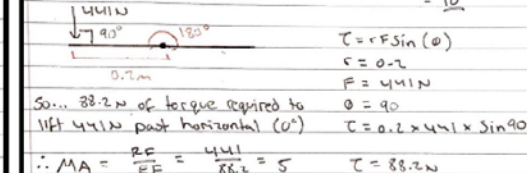 441N
90°
180°
0.2m
τ = rF sin (θ)
r = 0.2
F = 441N
θ = 90
τ = 0.2 × 441 × sin 90
τ = 88.2N
So... 88.2N of torque required to
lift 441N past horizontal (0°)
∴ MA = RF/EF = 441/88.2 = 5